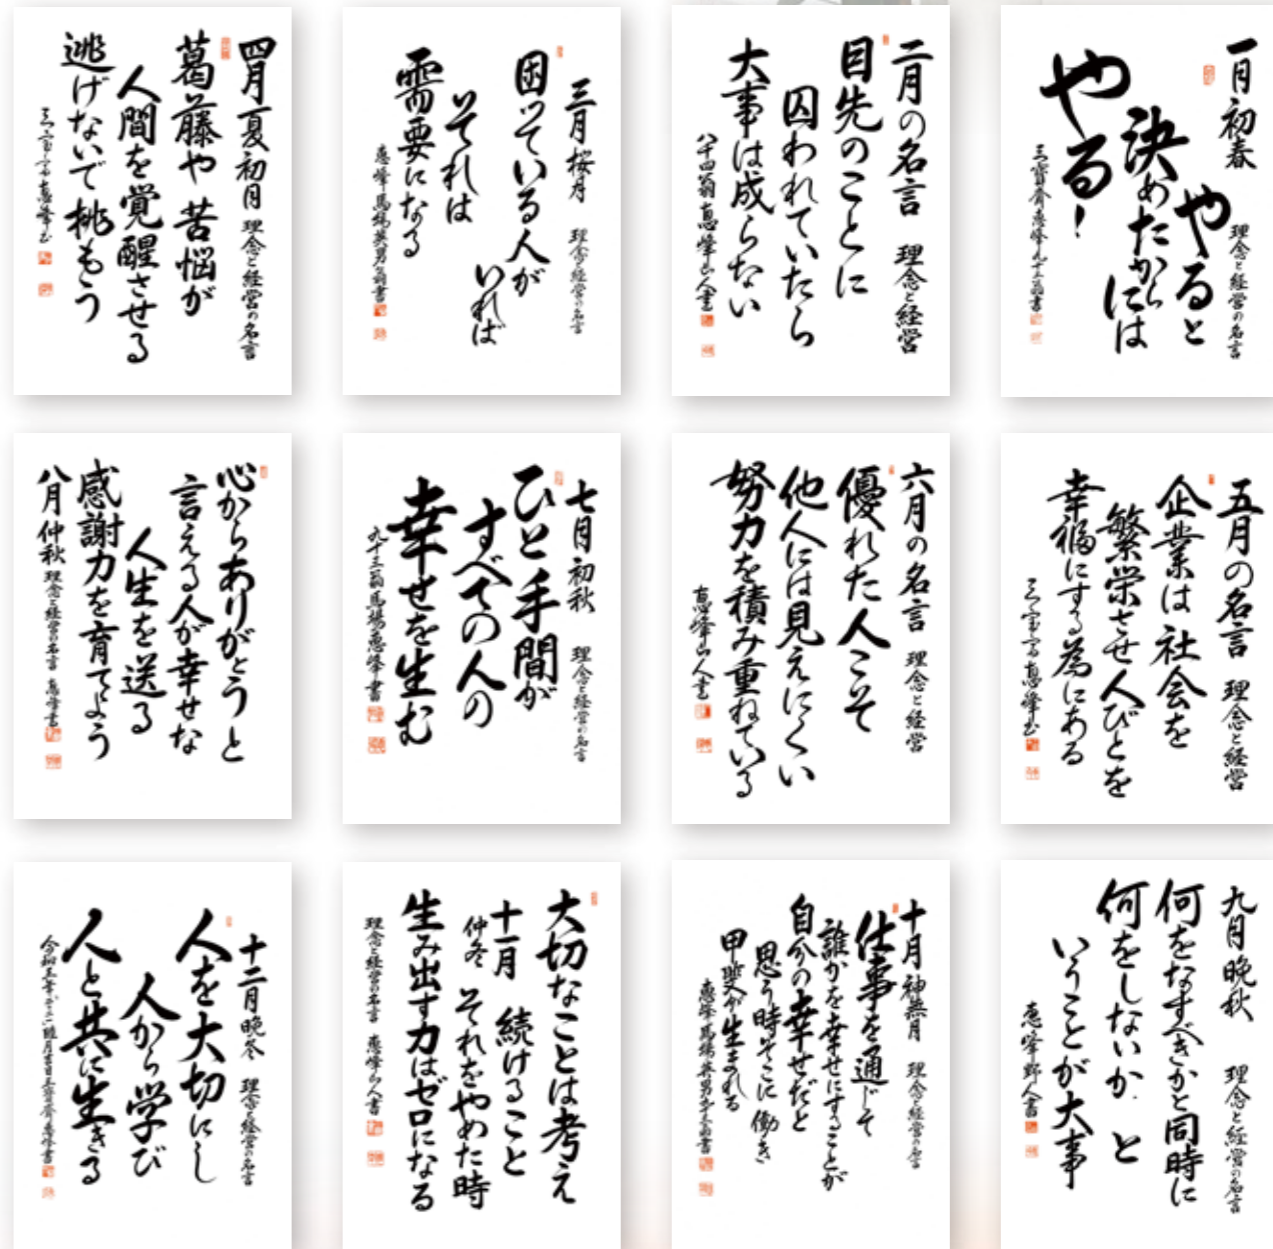 一月初春 理念と経営の名言
やると
決めたからには
やる!
三寶齋恵峰九十三翁書
二月の名言 理念と経営
目先のことに
囚われていたら
大事は成らない
八十四翁恵峰山人書
三月桜月 理念と経営の名言
困っている人が
いれば
それは
需要になる
恵峰馬場英男翁書
四月夏初月 理念と経営の名言
葛藤や苦悩が
人間を覚醒させる
逃げないで挑もう
五月の名言 理念と経営
企業は社会を
繁栄させ人びとを
幸福にする為にある
六月の名言 理念と経営
優れた人こそ
他人には見えにくい
努力を積み重ねている
恵峰山人書
七月初秋 理念と経営の名言
ひと手間が
すべての人の
幸せを生む
九十三翁馬場恵峰書
心からありがとうと
言える人が幸せな
人生を送る
感謝力を育てよう
八月仲秋 理念と経営の名言 恵峰書
九月晩秋 理念と経営の名言
何をなすべきかと同時に
何をしないか と
いうことが大事
恵峰野人書
十月神無月 理念と経営の名言
仕事を通じて
誰かを幸せにすることが
自分の幸せだと
思う時そこに働き
甲斐が生まれる
大切なことは考え
続けること
十一月仲冬
それをやめた時
生み出す力はゼロになる
理念と経営の名言 恵峰山人書
十二月晩冬 理念と経営の名言
人を大切にし
人から学び
人と共に生きる